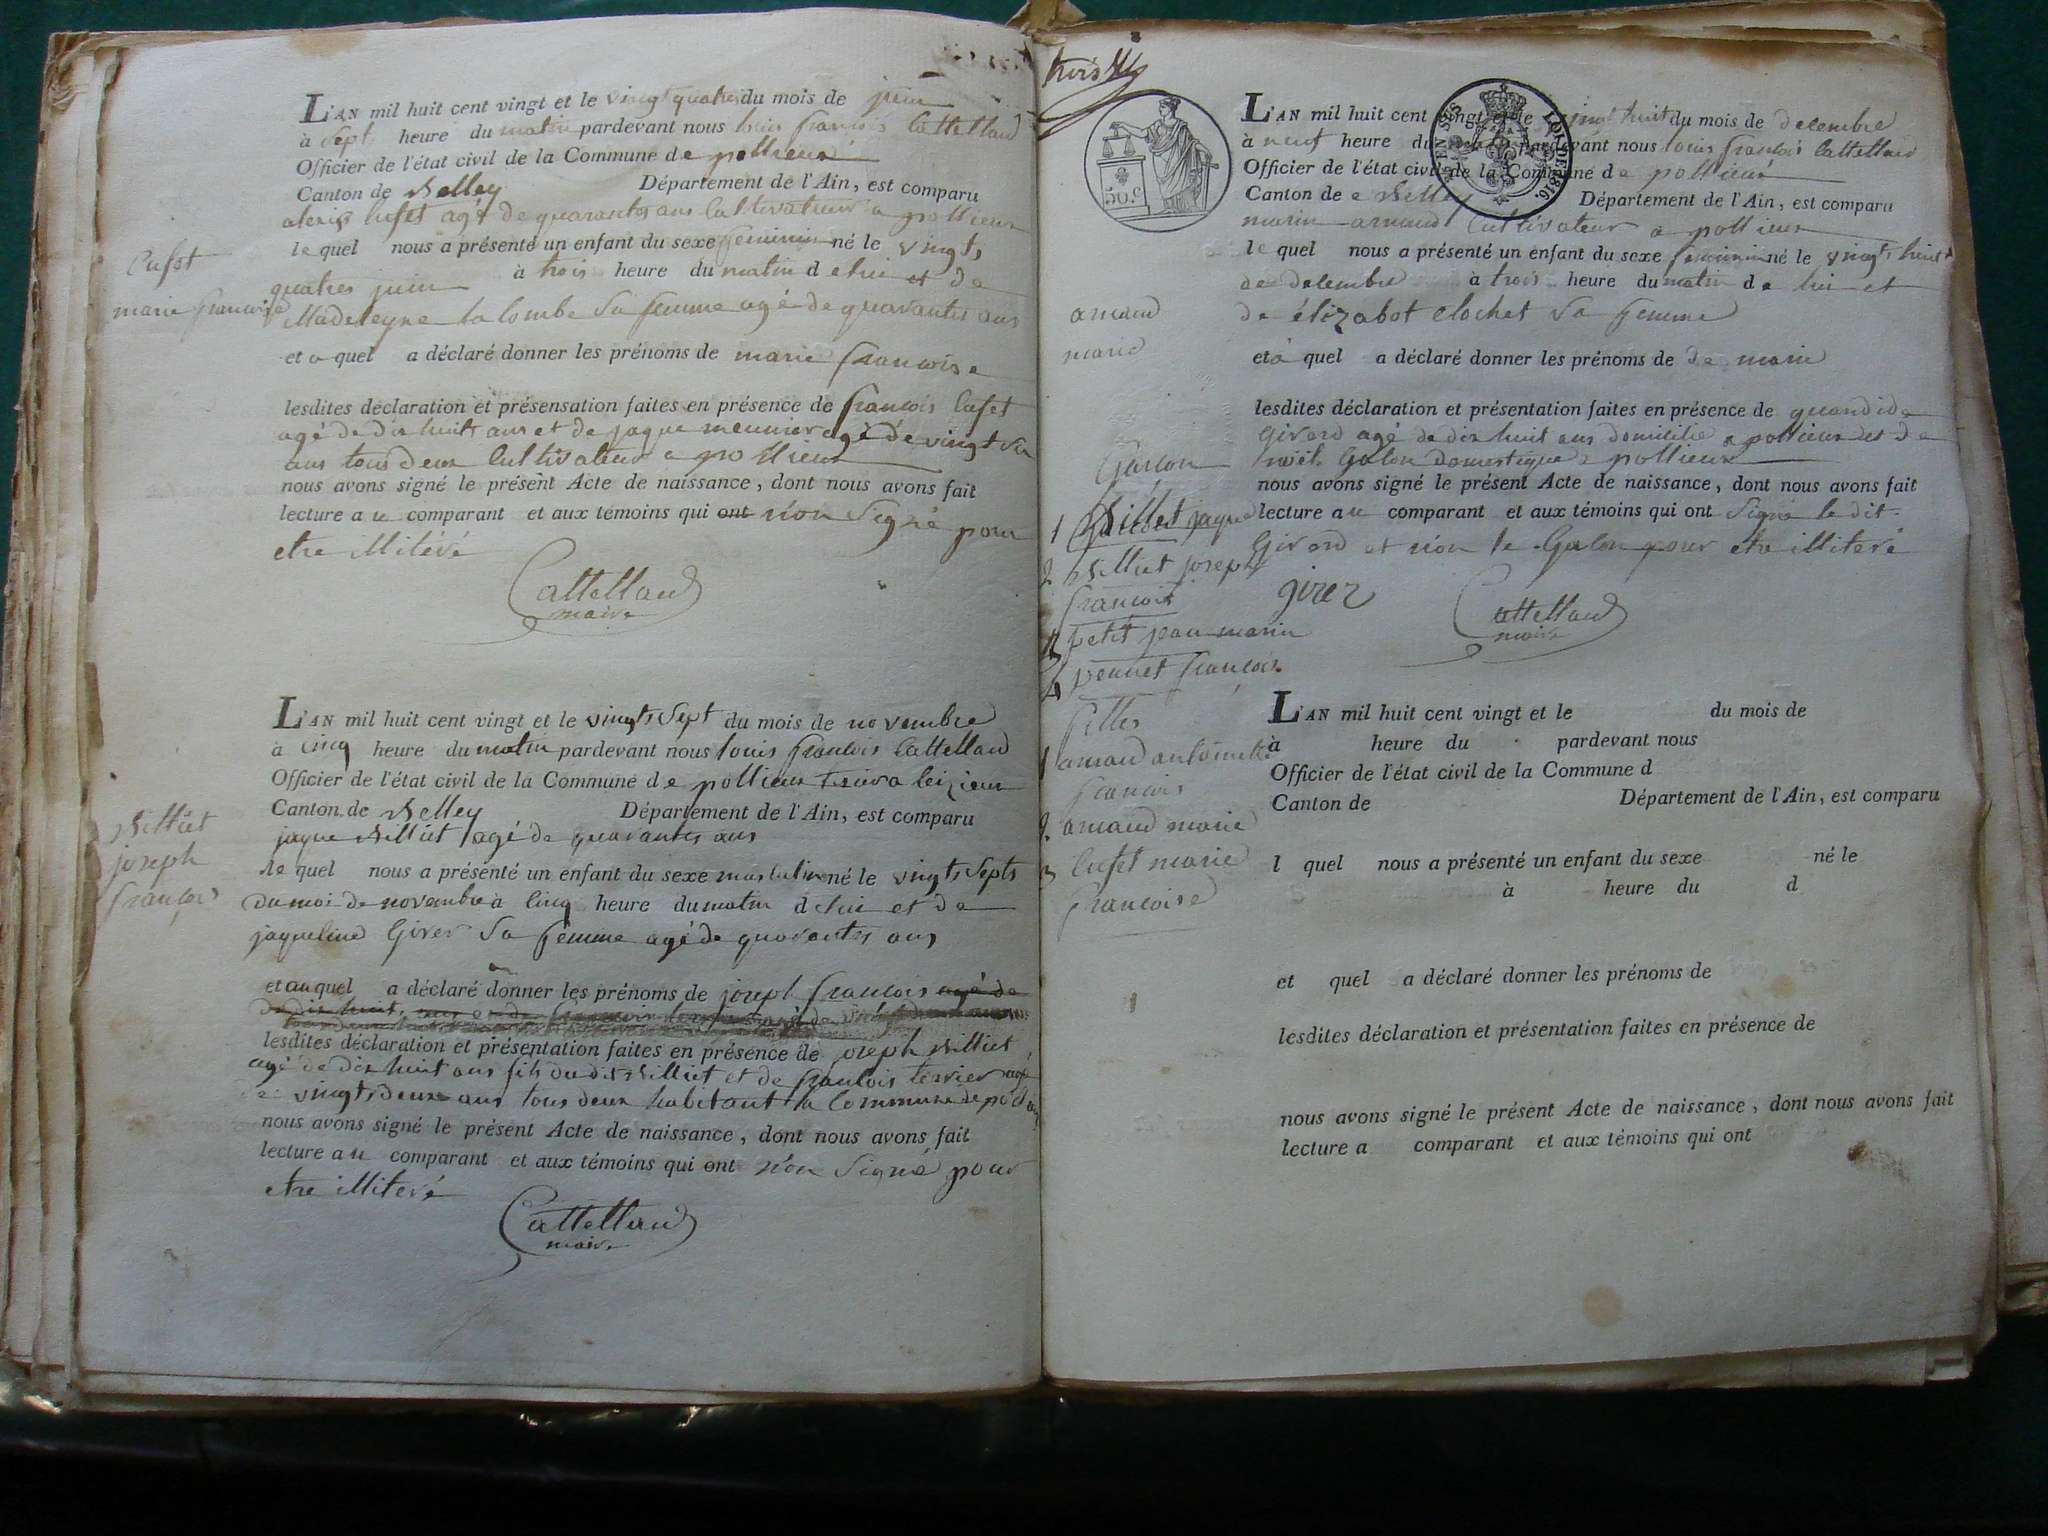 L'AN mil huit cent vingt et le vingt quatre du mois de juin
à sept heure du matin pardevant nous louis françois Cattelland
Officier de l'état civil de la Commune de pollieux
Canton de Belley Département de l'Ain, est comparu
alexis Cufet agé de quarantes ans Cultivateur a pollieux
le quel nous a présenté un enfant du sexe feminin né le vingt
quatres juin à trois heure du matin de lui et de
Madeleyne la lombe Sa femme agé de quarantes ans
et a quel a déclaré donner les prénoms de marie francoise
lesdites déclaration et présensation faites en présence de francois Cufet
agé de dix huit ans et de jaque meunier agé de vingt six
ans tous deux Cultivateur a pollieux
nous avons signé le présent Acte de naissance, dont nous avons fait
lecture au comparant et aux témoins qui ont n'on Signé pour
etre illiteré
Cattelland
maire
Cufet
marie francoise
L'AN mil huit cent vingt et le vingts Sept du mois de novembre
à Cinq heure du matin pardevant nous louis francois Cattelland
Officier de l'état civil de la Commune de pollieux
Canton de Belley Département de l'Ain, est comparu
jaque Billiet agé de quarantes ans
le quel nous a présenté un enfant du sexe masculin né le vingts Septs
du moi de novembre à Cinq heure du matin de lui et de
jaqueline Girer Sa femme agé de quarantes ans
et au quel a déclaré donner les prénoms de joseph francois agé de
de dix huit ans et de
lesdites déclaration et présentation faites en présence de joseph Billiet
agé de dix huit ans fils du dit Billiet et de francois terrier agé
de vingts deux ans tous deux habitant la Commune de
nous avons signé le présent Acte de naissance, dont nous avons fait
lecture au comparant et aux témoins qui ont n'on Signé pour
etre illiteré
Cattelland
maire
Billiet
joseph
françois
trois
50.c
LOI DE 1816.
L'AN mil huit cent vingt et le vingt huit du mois de decembre
à neuf heure du pardevant nous louis francois Cattelland
Officier de l'état civil de la Commune de pollieux
Canton de Belley Département de l'Ain, est comparu
marin arnaud Cultivateur a pollieux
le quel nous a présenté un enfant du sexe feminin né le vingts huit
de decembre à trois heure du matin de lui et
de élizabot Clochet Sa femme
et à quel a déclaré donner les prénoms de de marie
lesdites déclaration et présentation faites en présence de
Girerd agé de dix huit ans domicilié a pollieux et de
noël Galon domestique a pollieux
nous avons signé le présent Acte de naissance, dont nous avons fait
lecture au comparant et aux témoins qui ont Signé le dit
Girerd et n'on le Galon pour etre illiteré
girer
Cattelland
maire
arnaud
marie
Garcon
1 Billiet jaque
2 Billiet joseph
francois
3 petit jean marin
4 pennet francois
filles
1 arnaud antoinette
francois
2 arnaud marie
3 Cufet marie
francoise
L'AN mil huit cent vingt et le du mois de
à heure du pardevant nous
Officier de l'état civil de la Commune d
Canton de Département de l'Ain, est comparu
l quel nous a présenté un enfant du sexe né le
à heure du d
et quel a déclaré donner les prénoms de
lesdites déclaration et présentation faites en présence de
nous avons signé le présent Acte de naissance, dont nous avons fait
lecture a comparant et aux témoins qui ont